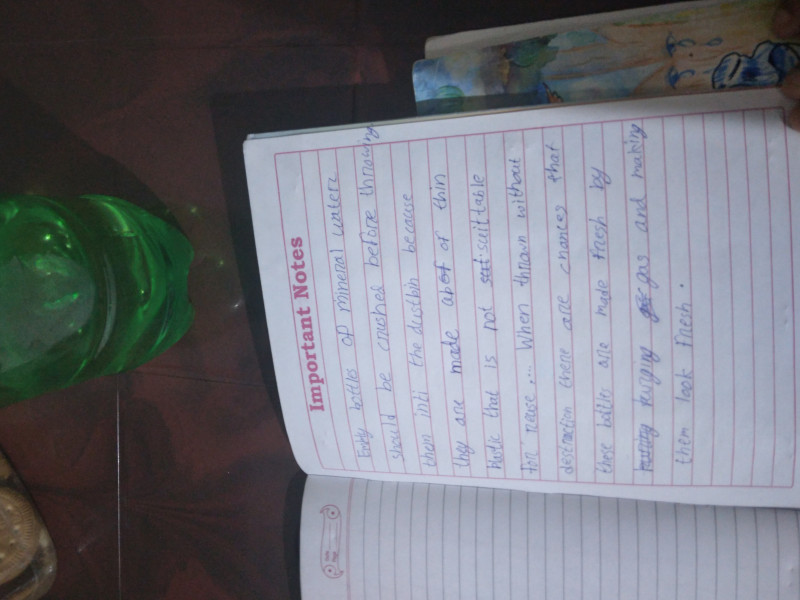 Important Notes
Empty bottles of mineral water
should be crushed before throwing
them inti the dustbin because
they are made of thin
plastic that is not suittable
for reuse... When thrown without
destruction there are chances that
these bottles are made fresh by
purging gas and making
them look fresh.